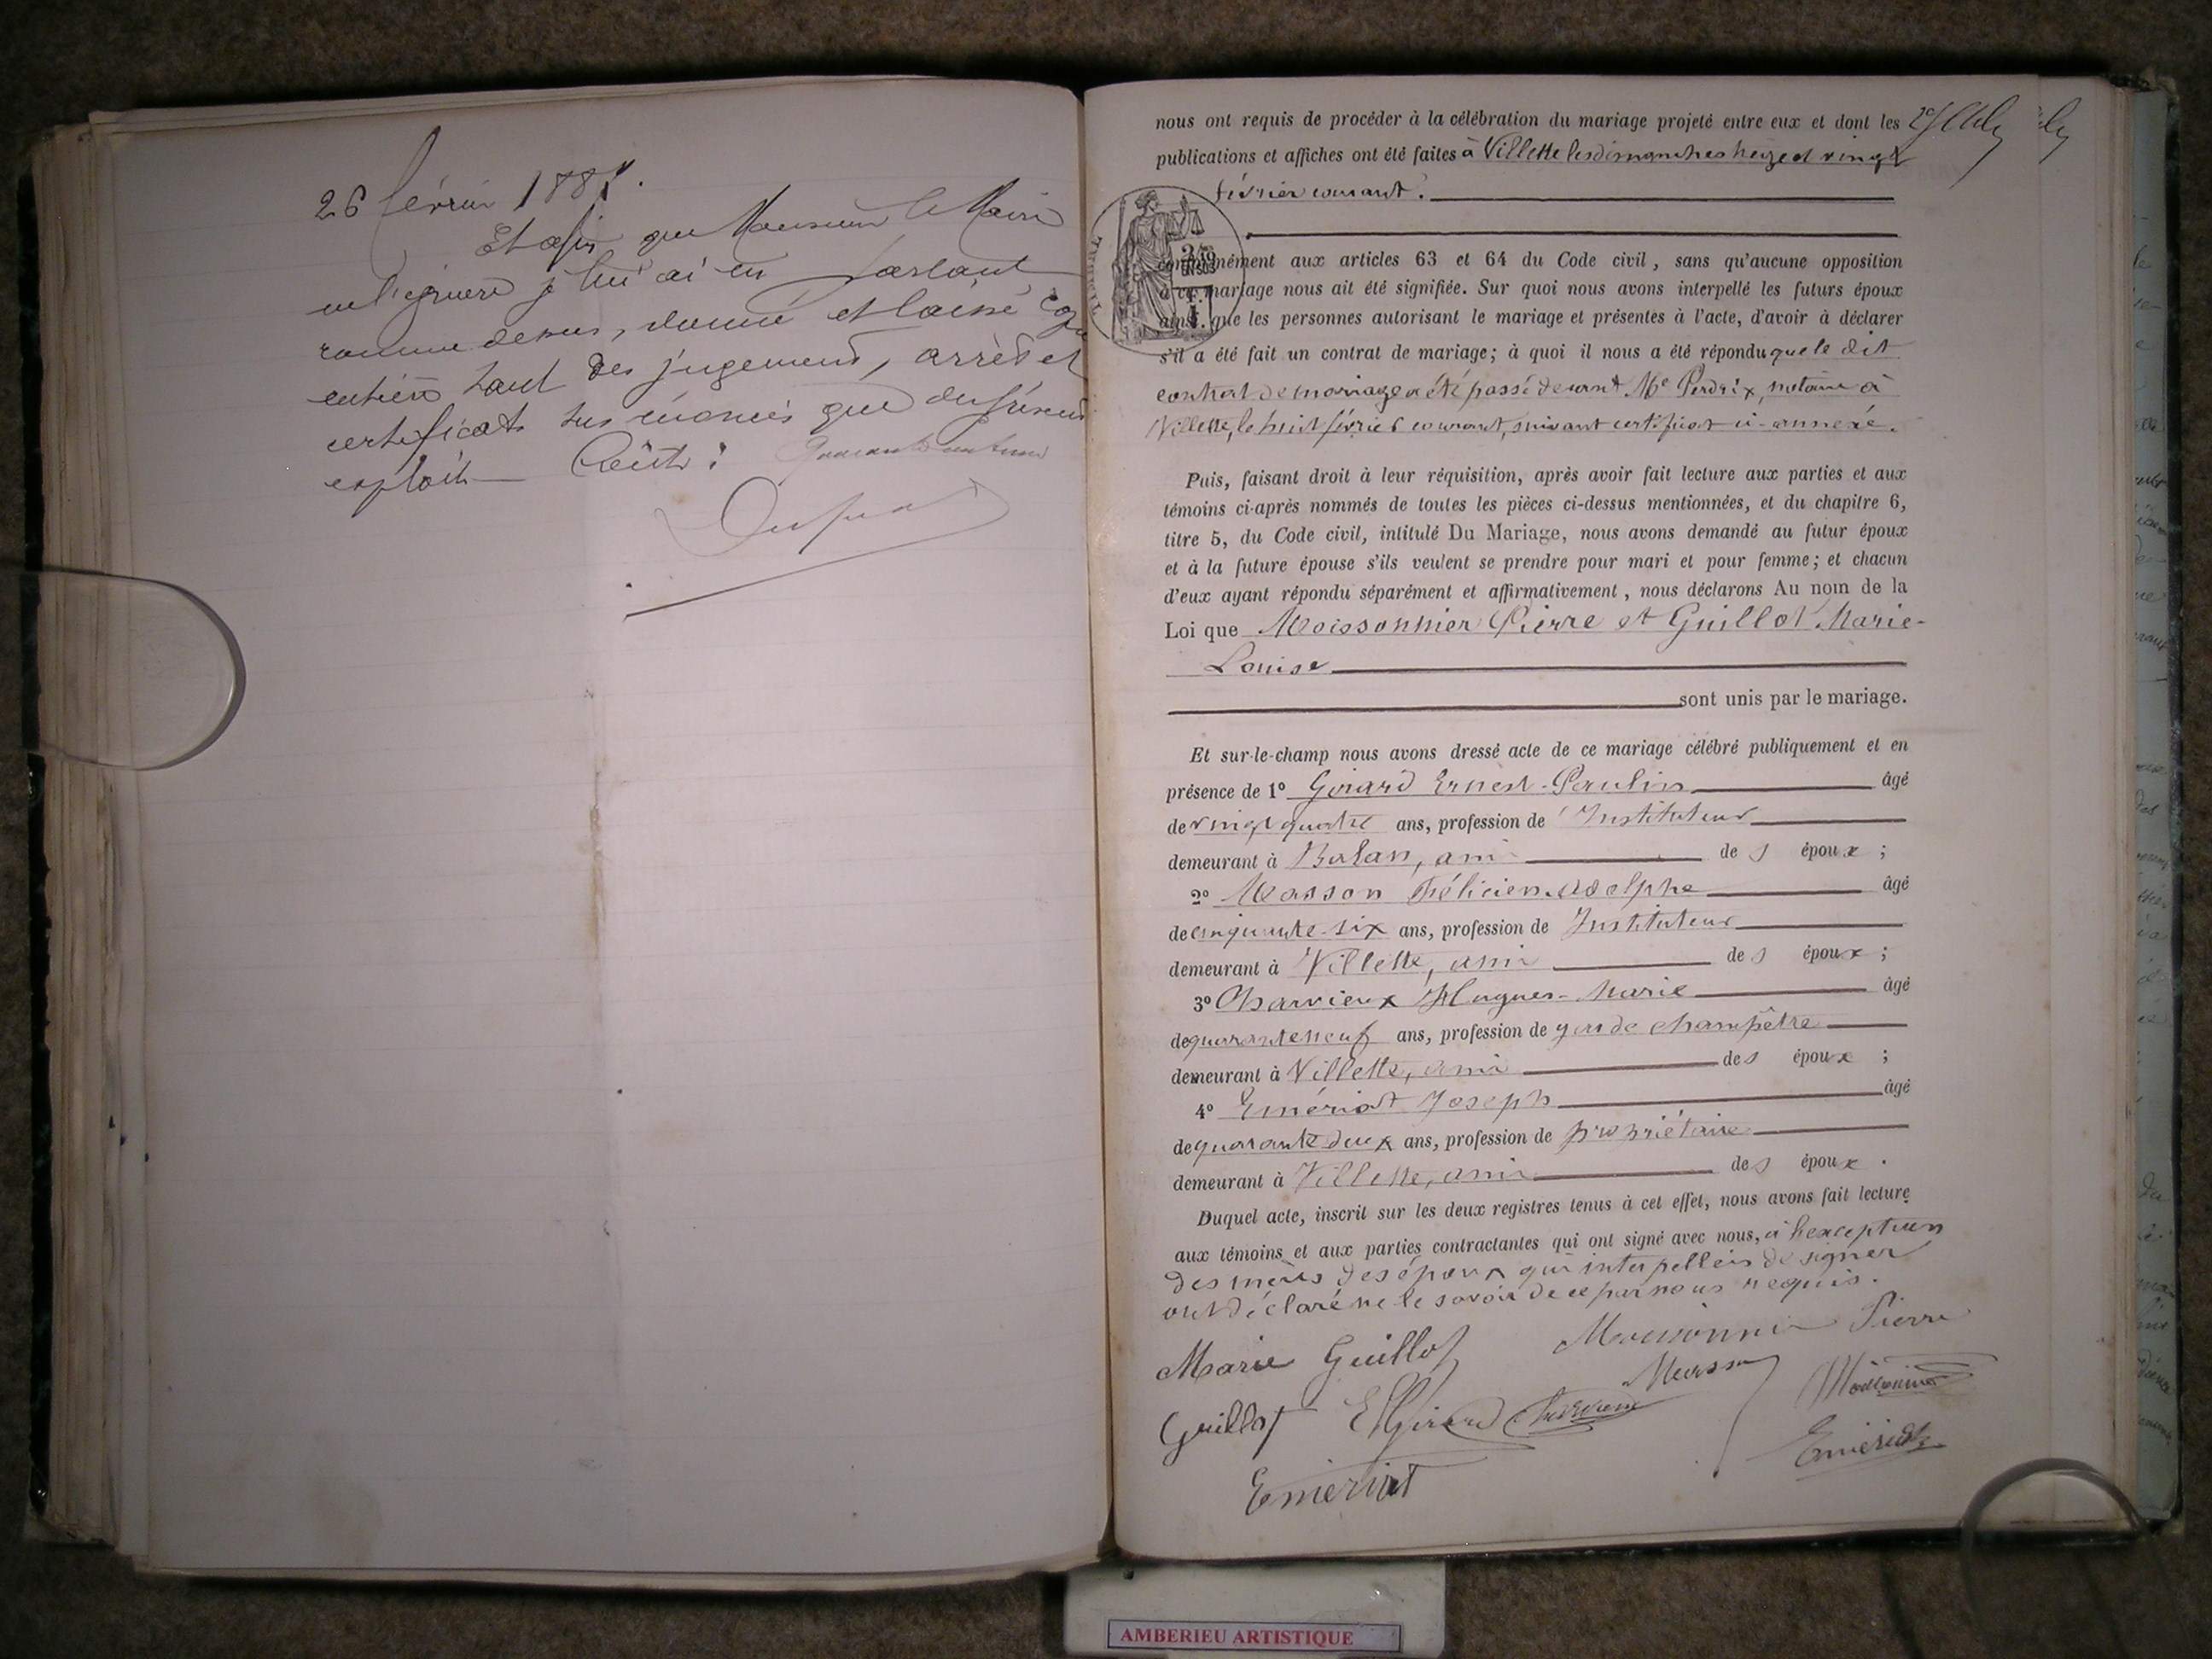 26 février 188
Et afin que Monsieur le Maire
n'en ignore je lui ai en parlant
comme dessus, donné et laissé copie
entière tant des jugement, arrêt et
certificats sus énoncés que du présent
exploit Coût :
nous ont requis de procéder à la célébration du mariage projeté entre eux et dont les
publications et affiches ont été faites à Villette les dimanches treize et vingt
février courant.
conformément aux articles 63 et 64 du Code civil, sans qu'aucune opposition
à ce mariage nous ait été signifiée. Sur quoi nous avons interpellé les futurs époux
ainsi que les personnes autorisant le mariage et présentes à l'acte, d'avoir à déclarer
s'il a été fait un contrat de mariage; à quoi il nous a été répondu que le dit
contrat de mariage a été passé devant Me Perdrix, notaire à
Villette, le huit février courant, suivant certificat ci-annexé.
Puis, faisant droit à leur réquisition, après avoir fait lecture aux parties et aux
témoins ci-après nommés de toutes les pièces ci-dessus mentionnées, et du chapitre 6,
titre 5, du Code civil, intitulé Du Mariage, nous avons demandé au futur époux
et à la future épouse s'ils veulent se prendre pour mari et pour femme; et chacun
d'eux ayant répondu séparément et affirmativement, nous déclarons Au nom de la
Loi que Moissonnier Pierre et Guillot Marie-
Louise
sont unis par le mariage.
Et sur-le-champ nous avons dressé acte de ce mariage célébré publiquement et en
présence de 1º Girard Ernest-Paulin âgé
de vingt quatre ans, profession de Instituteur
demeurant à Balan, ami des époux ;
2º Masson Félicien Adolphe âgé
de cinquante-six ans, profession de Instituteur
demeurant à Villette, ami des époux ;
3º Charvieux Hugues-Marie âgé
de quarante neuf ans, profession de garde champêtre
demeurant à Villette, ami des époux ;
4º Emériat Joseph âgé
de quarante deux ans, profession de propriétaire
demeurant à Villette, ami des époux.
Duquel acte, inscrit sur les deux registres tenus à cet effet, nous avons fait lecture
aux témoins et aux parties contractantes qui ont signé avec nous, à l'exception
des mères des époux qui interpellées de signer
ont déclaré ne le savoir de ce par nous requis.
Marie Guillot Moissonnier Pierre
Masson Moissonnier
Guillot E Girard Charvieux
Emériat
Emeriat
AMBERIEU ARTISTIQUE